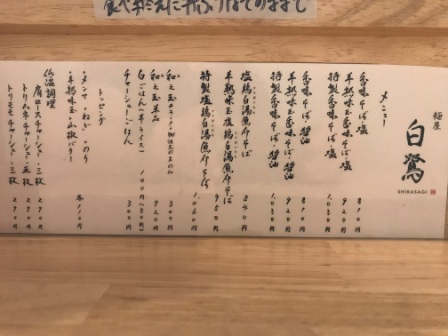 麺屋
白鷺
SHIRASAGI
メニュー
香味そば・塩 810円
半熟味玉香味そば・塩 920円
特製香味そば・塩 1,030円
香味そば・醤油 810円
半熟味玉香味そば・醤油 920円
特製香味そば・醤油 1,030円
塩鶏白湯魚介そば 840円
半熟味玉塩鶏白湯魚介そば 950円
特製塩鶏白湯魚介そば 1,060円
和え玉
和え玉
白ごはん
チャーシューごはん 300円
トッピング
・メンマ ・ねぎ ・のり
・半熟味玉 ・山椒バター 各110円
低温調理
肩ロースチャーシュー・三枚 270円
トリムネチャーシュー・三枚 270円
トリモモチャーシュー・三枚 270円